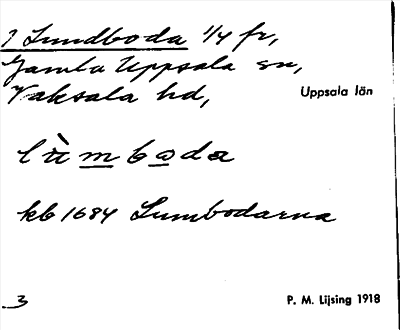 1 Lundboda 1/4 fr,
Gamla Uppsala sn,
Vaksala hd, Uppsala län
lùmboda
kb 1684 Lumbodarna
3 P. M. Lijsing 1918